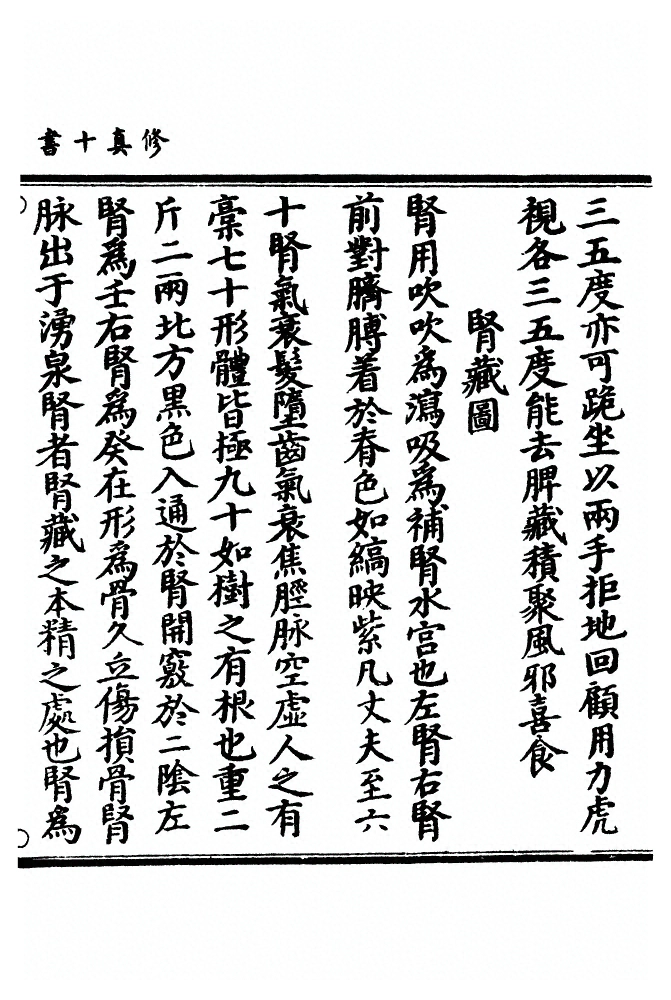 修真十書
三五度亦可跪坐以兩手拒地回顧用力虎
視各三五度能去脾藏積聚風邪喜食
腎藏圖
腎用吹吹為瀉吸為補腎水宫也左腎右腎
前對臍膊着於脊色如縞映紫凡丈夫至六
十腎氣衰髮墮齒氣衰焦脛脉空虛人之有
槖七十形體皆極九十如樹之有根也重二
斤二兩北方黑色入通於腎開竅於二陰左
腎爲壬右腎爲癸在形爲骨久立傷損骨腎
脉出于湧泉腎者腎藏之本精之處也腎爲